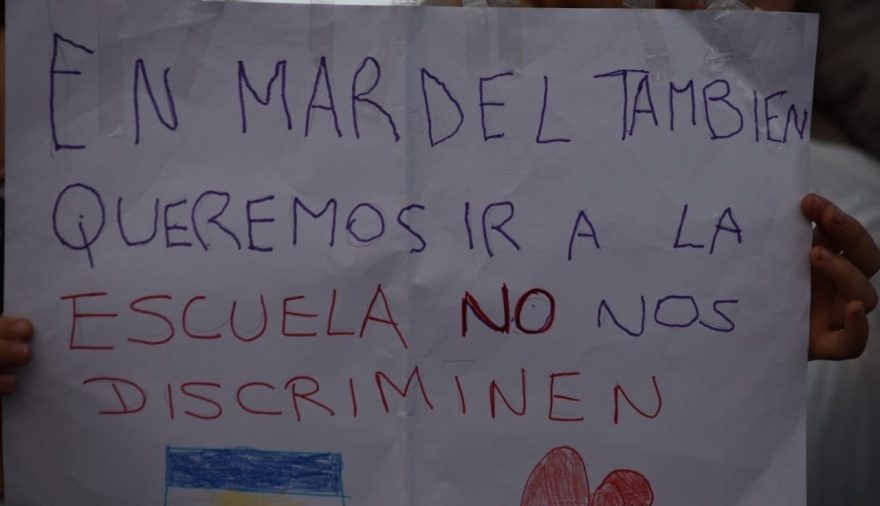 EN MAR DEL TAMBIEN
QUEREMOS IR A LA
ESCUELA NO NOS
DISCRIMINEN